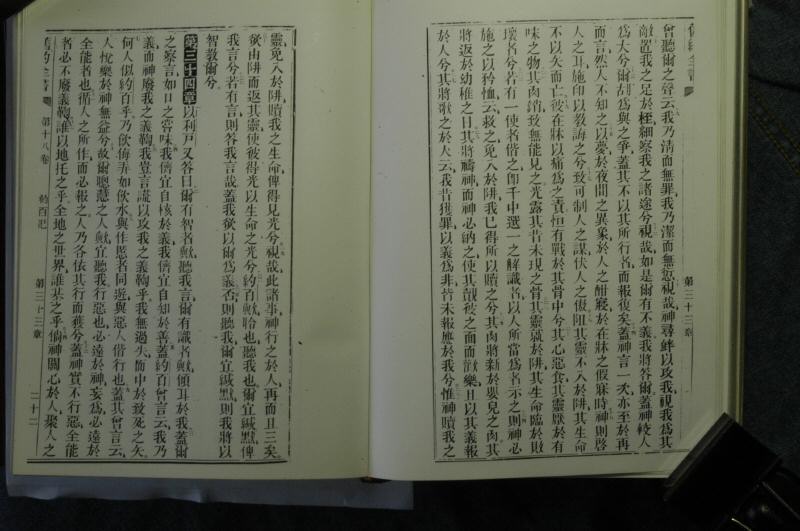 舊約全書 第三十三章
曾聽爾之聲云我乃清而無罪我乃潔而無愆視哉神尋釁以攻我視我爲其
敵置我之足於桎細察我之諸途兮視哉如是爾有不義我將答爾蓋神較人
爲大兮爾胡爲與之爭蓋其不以其所行者而報復矣蓋神言一次亦至於再
而言然人不知之以夢於夜間之異象於人之酣寢於在牀之假寐時神則啓
人之耳施印以敎誨之兮致可制人之謀伏人之傲阻其靈不入於阱其生命
不以矢而亡彼在牀以痛爲之責恒有戰於其骨中兮其心惡食其靈厭於有
味之物其肉銷致無能見之光露其昔未現之骨其靈就於阱其生命臨於敗
壞者兮若有一使者偕之卽千中選一之解識者以人所當爲者示之則神必
施之以矜恤云救之免入於阱我已得所以贖之兮其肉將新於嬰兒之肉其
將返於幼稚之日其將禱神而神必納之使其覿彼之面而歡樂且以其義報
於人兮其將歌之於人云我昔獲罪以義爲非皆未報應於我兮惟神贖我之
靈免入於阱贖我之生命俾得見光兮視哉此諸事神行之於人再而且三矣
欲由阱而返其靈使彼得光以生命之光兮約百歟聆也聽我也爾宜緘默俾
我言兮若有言則答我言哉蓋我欲以爾爲義否則聽我爾宜緘默則我將以
智敎爾兮
第三十四章以利戸又答曰爾有智者歟聽我言爾有識者歟傾耳於我蓋爾
之察言如口之嘗味我儕宜自核於義我儕宜自知於善蓋約百曾言云我乃
義而神廢我之義鞫我豈言謊以攻我之義鞫乎我無過失而中於致死之矢
何人似約百乎乃飮侮弄如飮水與作慝者同遊與惡人偕行也蓋其曾言云
人悅樂於神無益兮故爾聰慧之人歟宜聽我行惡也必遠於神妄爲也必遠於
全能者也循人之所作而必報之人乃各依其行而獲兮蓋神實不行惡全能
者必不廢義鞫誰以地托之乎全地之世界誰基之乎倘神關心於人聚人之
舊約全書 第十八卷 約百記 第三十三章 二十二